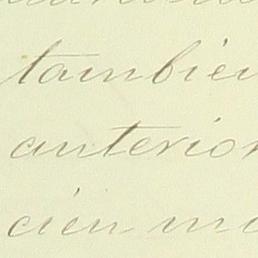 tambié
anterio
cien m